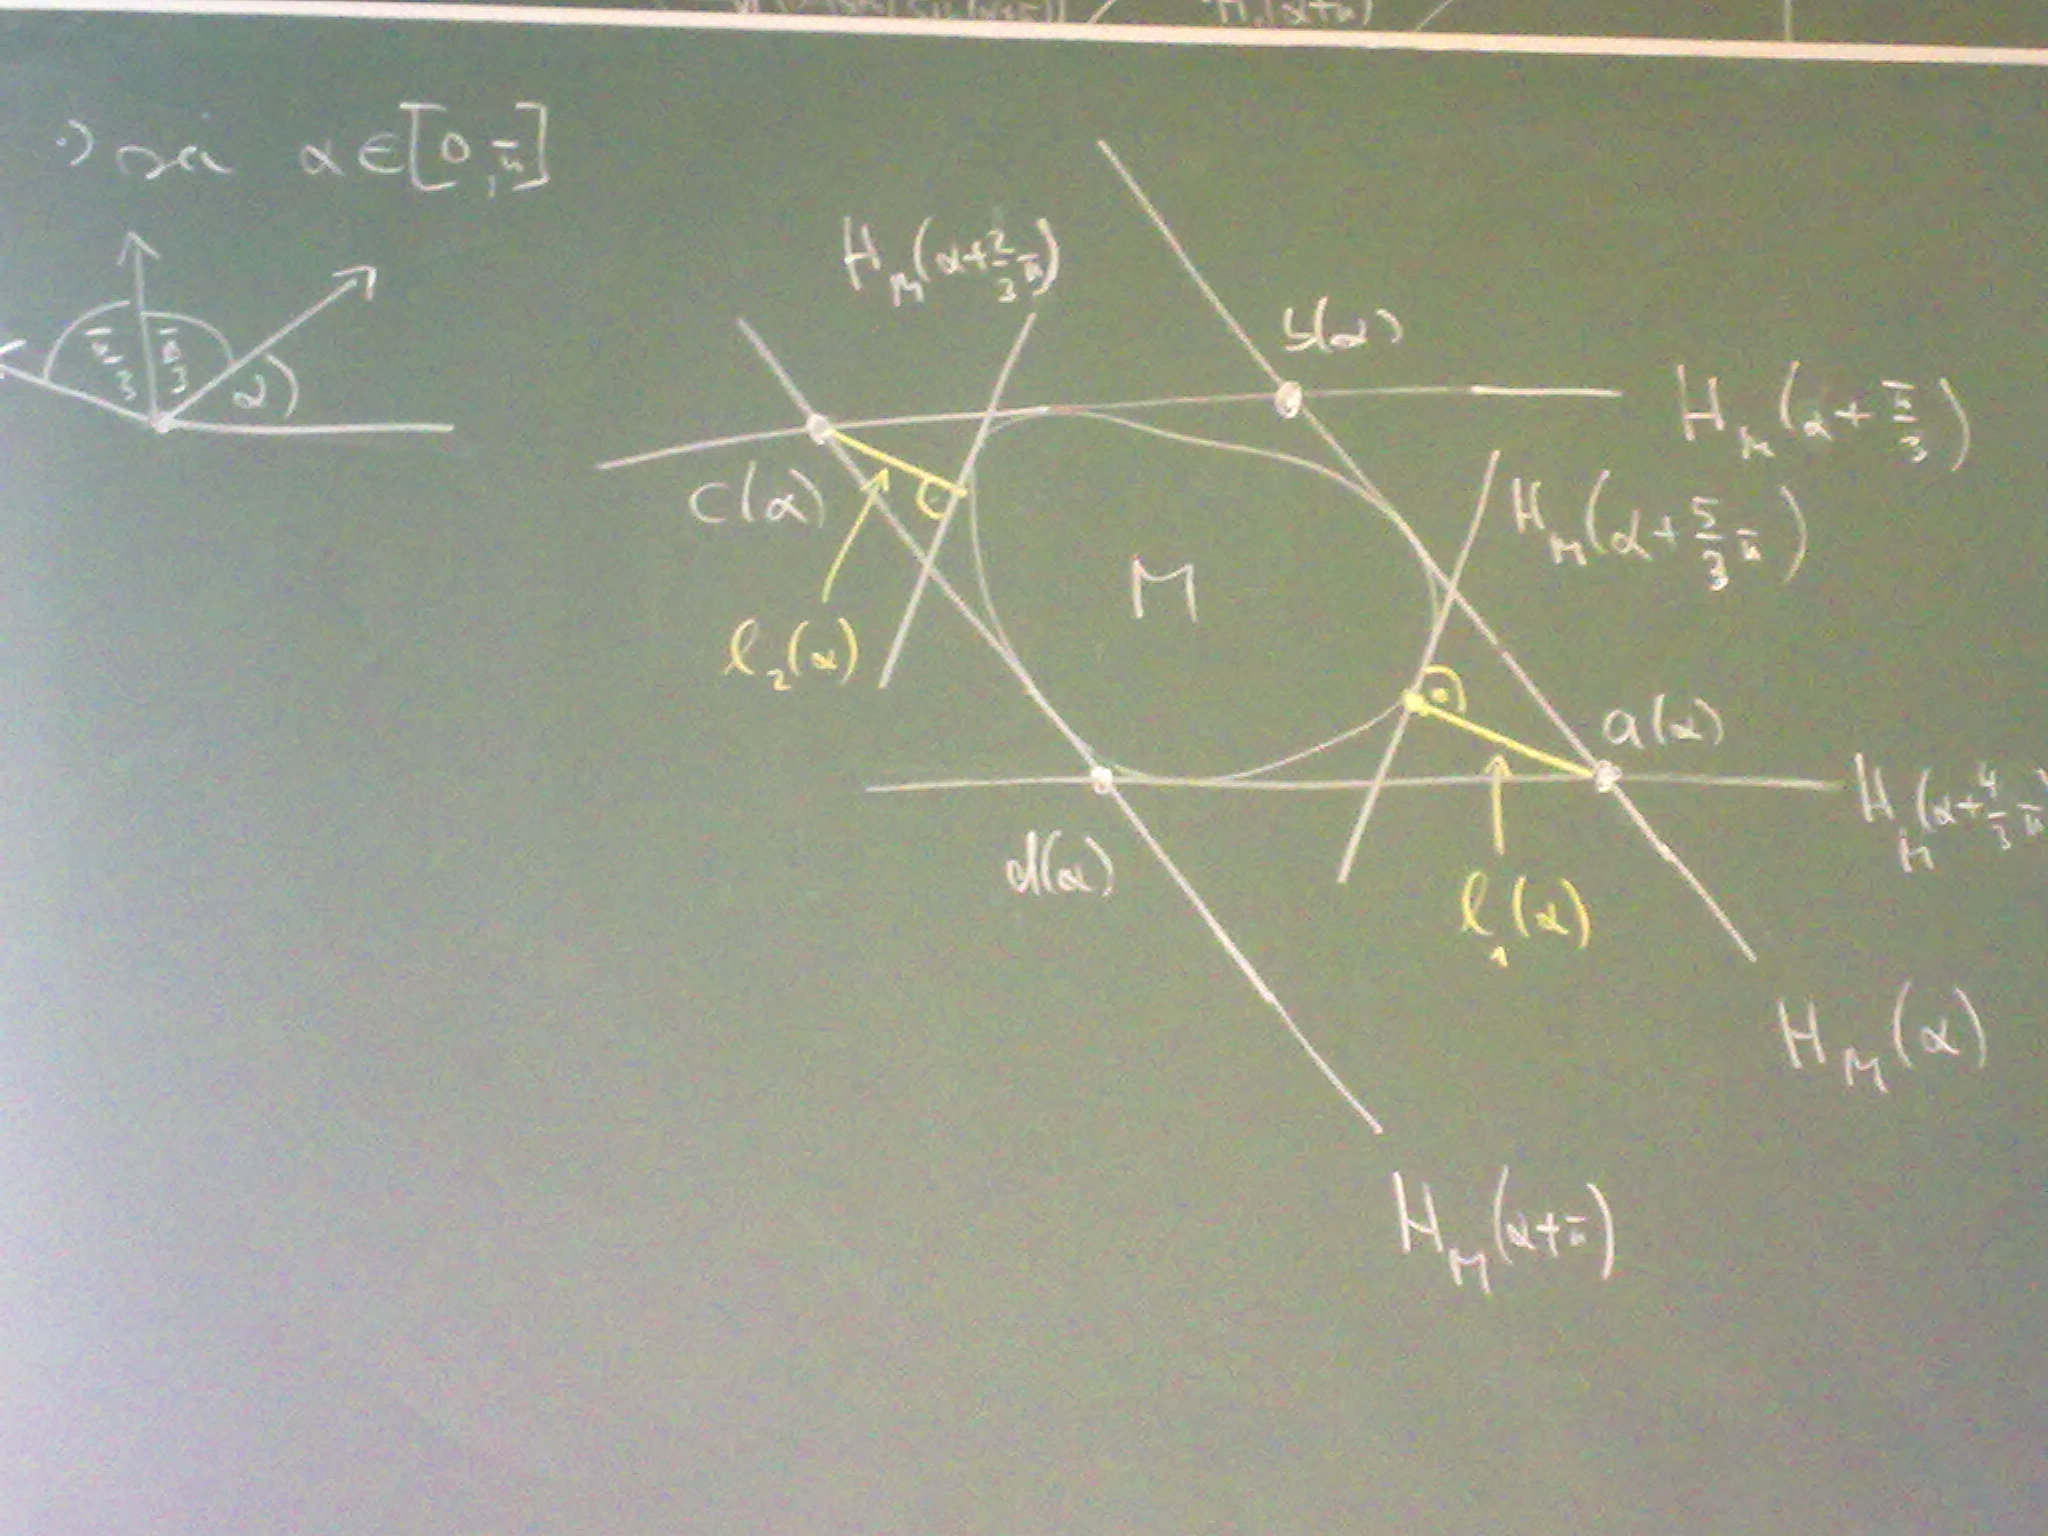 ·) sei α ∈ [0, π]
π/3 π/3 α
H_M(α + 2/3 π)
b(α)
H_M(α + π/3)
c(α)
H_M(α + 5/3 π)
M
l_2(α)
a(α)
H_M(α + 4/3 π)
d(α)
l_1(α)
H_M(α)
H_M(α + π)